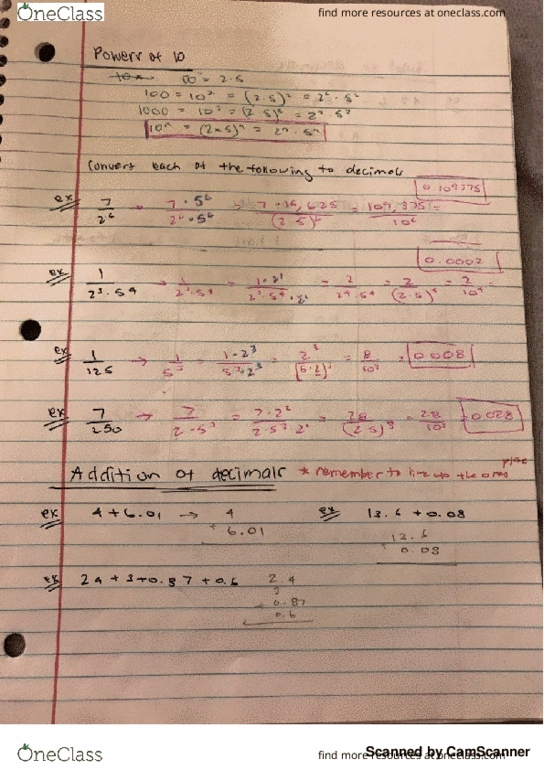 OneClass
find more resources at oneclass.com
Powers of 10
10 = 2·5
100 = 10² = (2·5)² = 2²·5²
1000 = 10³ = (2·5)³ = 2³·5³
10ⁿ = (2×5)ⁿ = 2ⁿ·5ⁿ
Convert each of the following to decimals
ex 7/2⁶ = 7·5⁶/2⁶·5⁶ = 7·15,625/(2·5)⁶ = 109,375/10⁶ = 0.109375
ex 1/2³·5⁴ → 1/2³·5⁴ = 1·2¹/2³·5⁴·2¹ = 2/2⁴·5⁴ = 2/(2·5)⁴ = 2/10⁴ = 0.0002
ex 1/125 → 1/5³ = 1·2³/5³·2³ = 2³/(5·2)³ = 8/10³ = 0.008
ex 7/250 → 7/2·5³ = 7·2²/2·5³·2² = 28/(2·5)³ = 28/10³ = 0.028
Addition of decimals * remember to line up the ones place
ex 4+6.01 → 4 + 6.01
ex 13.6 + 0.08
13.6 + 0.08
ex 2.4 + 3 + 0.87 + 0.6
2.4
3
+ 0.87
0.6
OneClass
find more resources at oneclass.com
Scanned by CamScanner